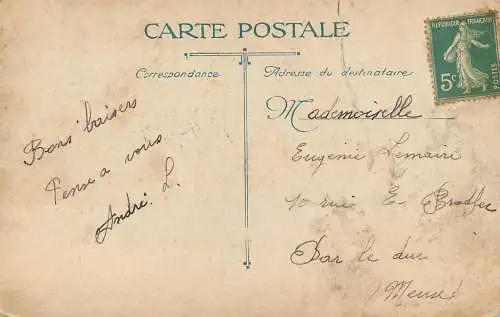 CARTE POSTALE
RÉPUBLIQUE FRANÇAISE
5c
POSTES
Correspondance
Adresse du destinataire
Bons baisers
Pense a vous
André. L.
Mademoiselle
Eugénie Lemaire
10 rue E.
Bar le duc
Meuse